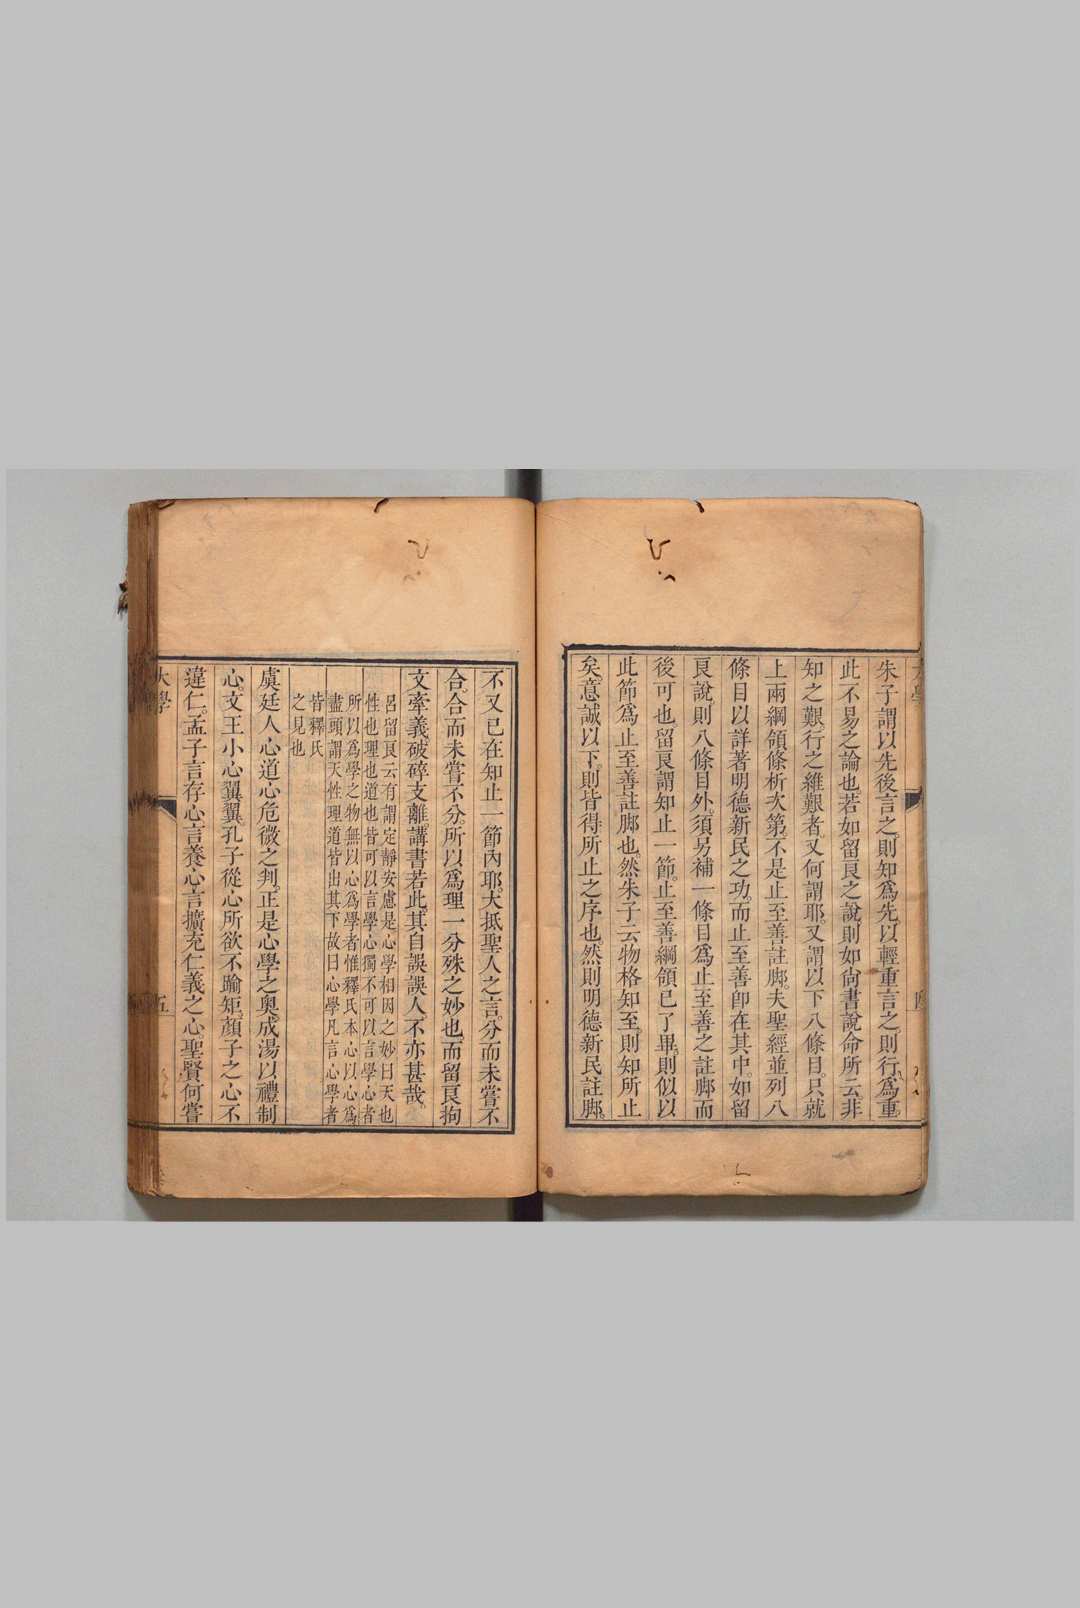 朱子謂以先後言之。則知爲先。以輕重言之。則行爲重。
此不易之論也。若如留良之說。則如尙書說命所云非
知之艱。行之維艱者。又何謂耶。又謂以下八條目。只就
上兩綱領條析次第。不是止至善註脚。夫聖經並列八
條目以詳著明德新民之功。而止至善卽在其中。如留
良說。則八條目外。須另補一條目爲止至善之註脚而
後可也。留良謂知止一節。止至善綱領已了畢。則似以
此節爲止至善註脚也。然朱子云物格知至。則知所止
矣。意誠以下。則皆得所止之序也。然則明德新民註脚。
不又已在知止一節內耶。大抵聖人之言。分而未嘗不
合。合而未嘗不分。所以爲理一分殊之妙也。而留良拘
文牽義。破碎支離。講書若此。其自誤誤人。不亦甚哉。
呂留良云有謂定靜安慮是心學相因之妙曰天也
性也理也道也皆可以言學心獨不可以言學心者
所以爲學之物無以心爲學者惟釋氏本心以心爲
盡頭謂天性理道皆出其下故曰心學凡言心學者
皆釋氏
之見也
虞廷人心道心危微之判。正是心學之奧。成湯以禮制
心。文王小心翼翼。孔子從心所欲不踰矩。顔子之心不
違仁。孟子言存心言養心言擴充仁義之心。聖賢何嘗
大學
五